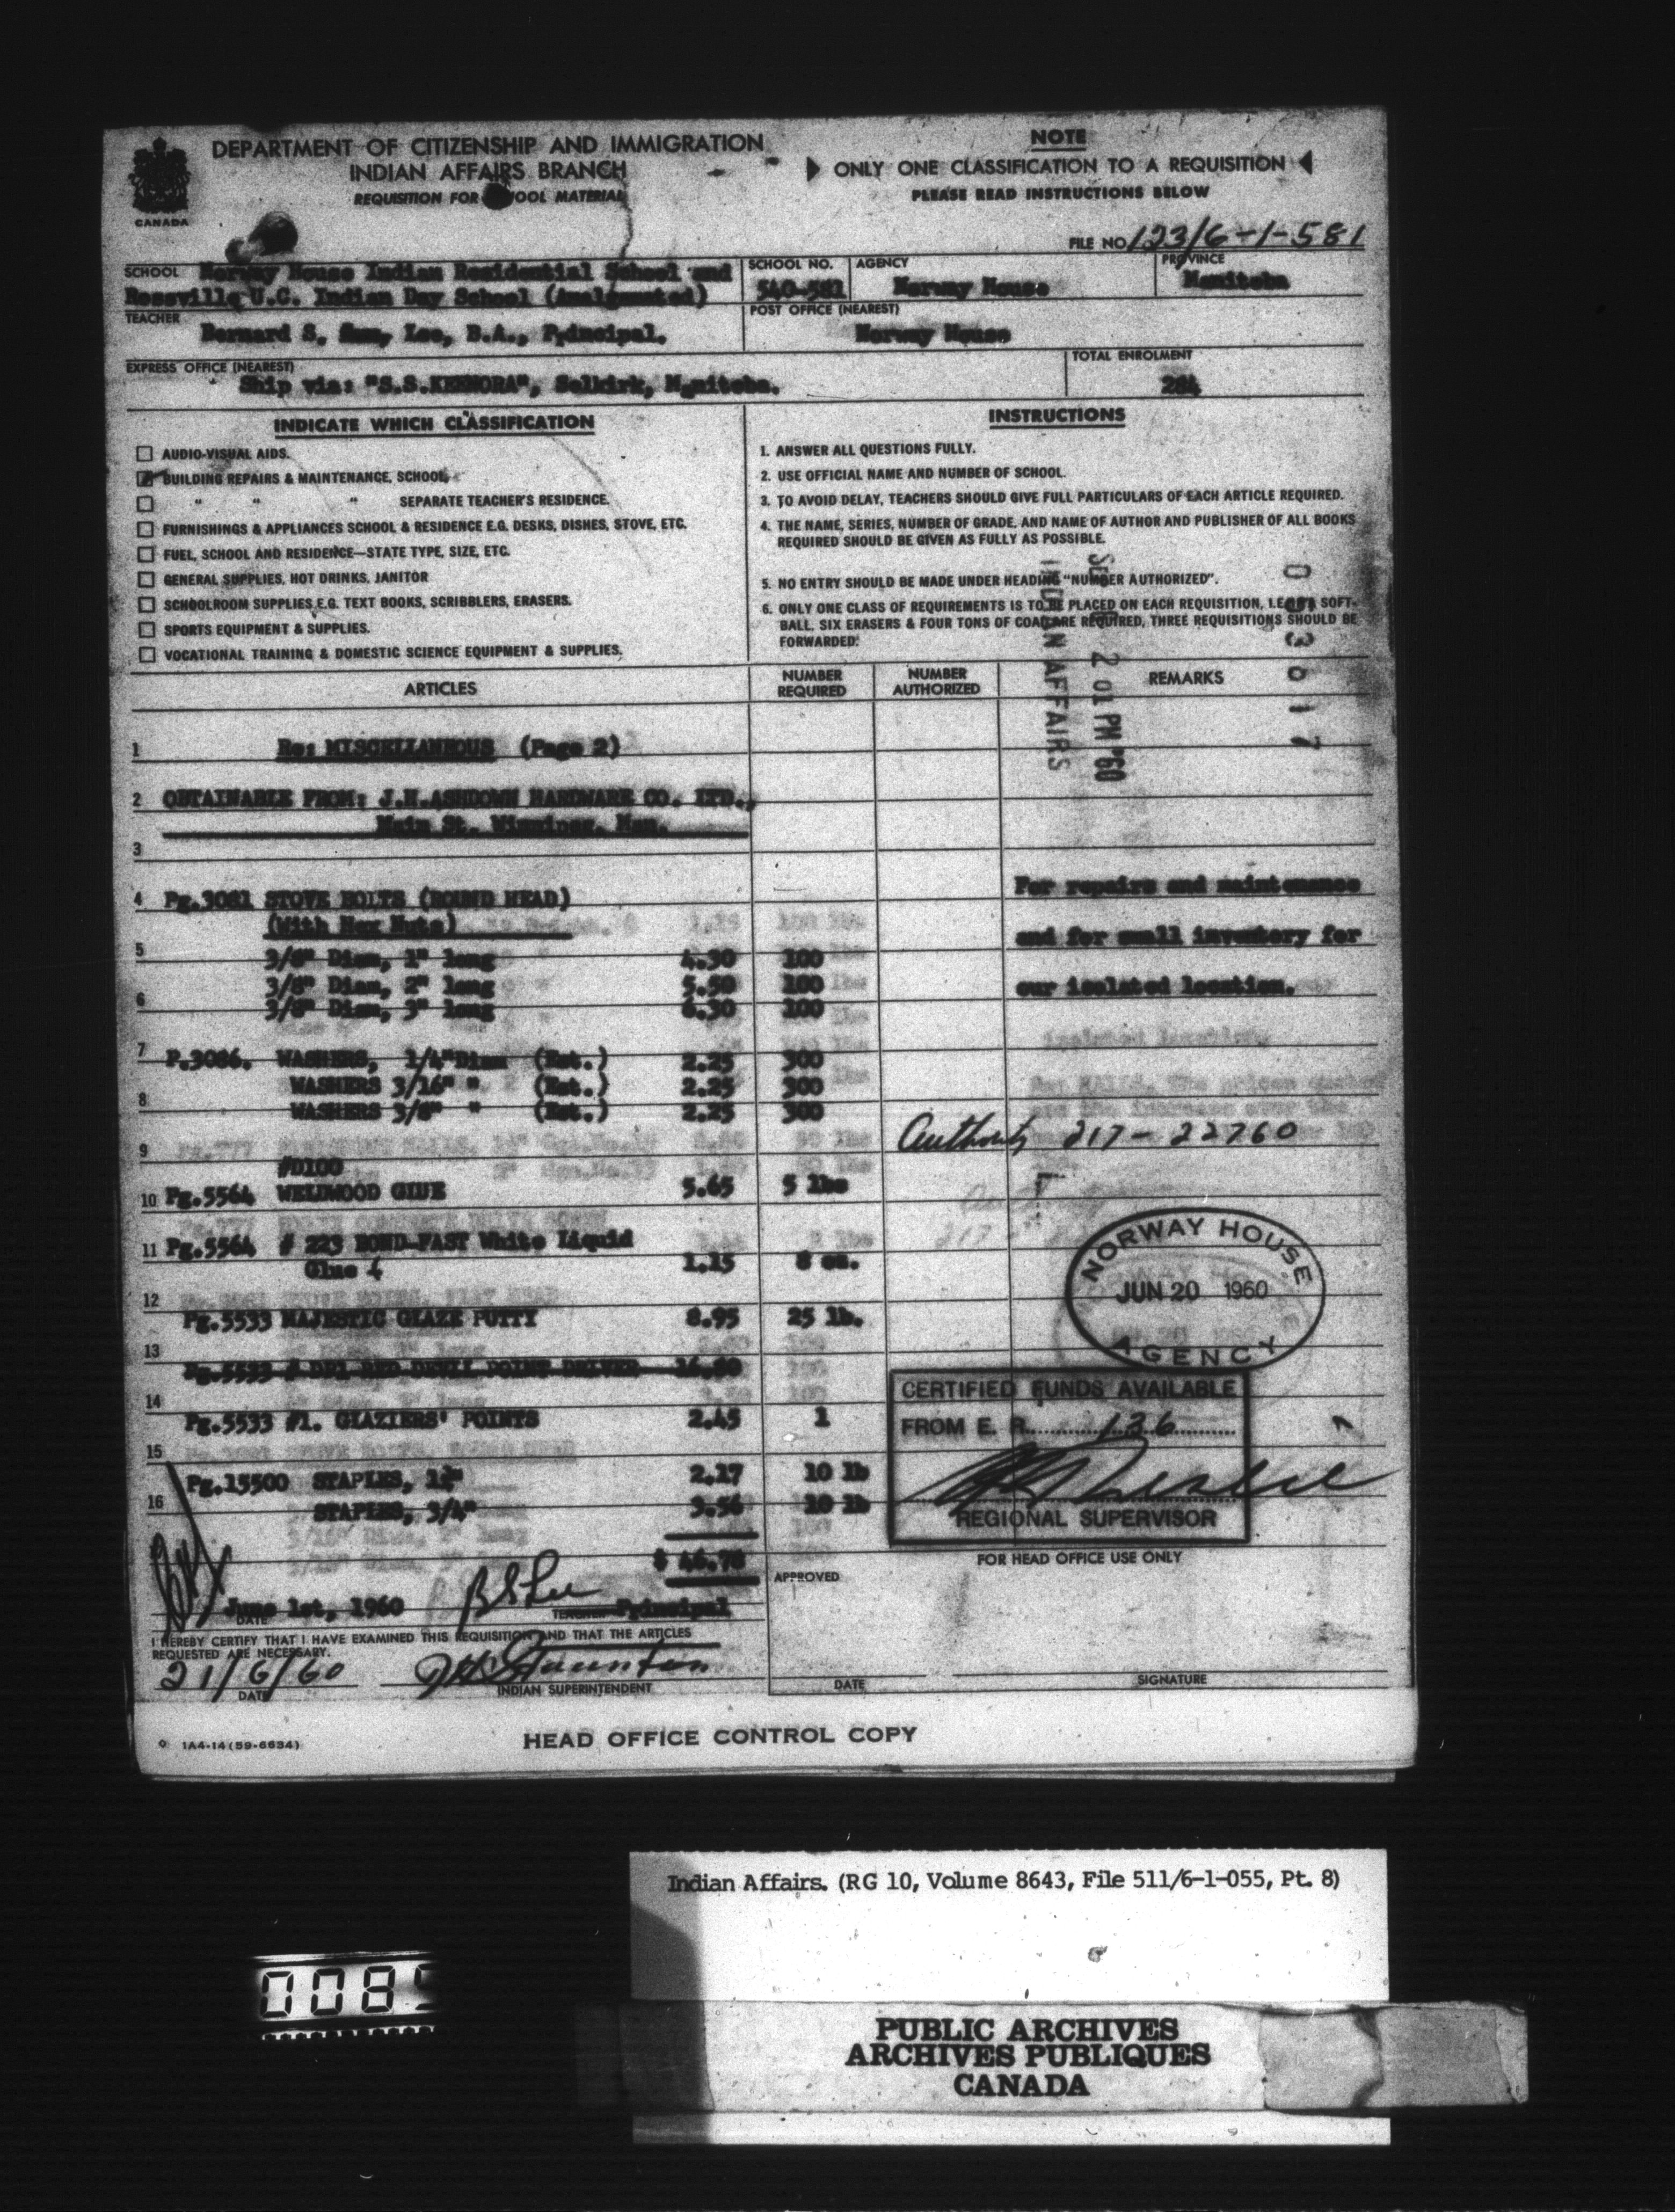 DEPARTMENT OF CITIZENSHIP AND IMMIGRATION
INDIAN AFFAIRS BRANCH
REQUISITION FOR SCHOOL MATERIAL
CANADA
NOTE
ONLY ONE CLASSIFICATION TO A REQUISITION
PLEASE READ INSTRUCTIONS BELOW
FILE NO 123/6-1-581
SCHOOL Norway House Indian Residential School and
Rossville U.C. Indian Day School (Amalgamated)
SCHOOL NO. 540-581
AGENCY Norway House
PROVINCE Manitoba
TEACHER Bernard S. Lee, B.A., Principal.
POST OFFICE (NEAREST) Norway House
EXPRESS OFFICE (NEAREST)
Ship via: "S.S.KEENORA", Selkirk, Manitoba.
TOTAL ENROLMENT
284
INDICATE WHICH CLASSIFICATION
AUDIO-VISUAL AIDS.
BUILDING REPAIRS & MAINTENANCE, SCHOOL
" " " SEPARATE TEACHER'S RESIDENCE.
FURNISHINGS & APPLIANCES SCHOOL & RESIDENCE E.G. DESKS, DISHES, STOVE, ETC.
FUEL, SCHOOL AND RESIDENCE—STATE TYPE, SIZE, ETC.
GENERAL SUPPLIES, HOT DRINKS, JANITOR
SCHOOLROOM SUPPLIES, E.G. TEXT BOOKS, SCRIBBLERS, ERASERS.
SPORTS EQUIPMENT & SUPPLIES.
VOCATIONAL TRAINING & DOMESTIC SCIENCE EQUIPMENT & SUPPLIES.
INSTRUCTIONS
1. ANSWER ALL QUESTIONS FULLY.
2. USE OFFICIAL NAME AND NUMBER OF SCHOOL.
3. TO AVOID DELAY, TEACHERS SHOULD GIVE FULL PARTICULARS OF EACH ARTICLE REQUIRED.
4. THE NAME, SERIES, NUMBER OF GRADE, AND NAME OF AUTHOR AND PUBLISHER OF ALL BOOKS
REQUIRED SHOULD BE GIVEN AS FULLY AS POSSIBLE.
5. NO ENTRY SHOULD BE MADE UNDER HEADING "NUMBER AUTHORIZED".
6. ONLY ONE CLASS OF REQUIREMENTS IS TO BE PLACED ON EACH REQUISITION, I.E. IF A SOFT-
BALL, SIX ERASERS & FOUR TONS OF COAL ARE REQUIRED, THREE REQUISITIONS SHOULD BE
FORWARDED.
2 01 PM '60
INDIAN AFFAIRS
ARTICLES
NUMBER REQUIRED
NUMBER AUTHORIZED
REMARKS
1 Re: MISCELLANEOUS (Page 2)
2 OBTAINABLE FROM: J.H.ASHDOWN HARDWARE CO. LTD.,
Main St. Winnipeg, Man.
3
4 Pg.3081 STOVE BOLTS (ROUND HEAD)
(With Hex Nuts)
For repairs and maintenance
and for small inventory for
our isolated location.
5 3/8" Diam, 1" long 4.30 100
3/8" Diam, 2" long 5.50 100
6 3/8" Diam, 3" long 6.30 100
7 P.3086. WASHERS, 1/4"Diam (Est.) 2.25 300
WASHERS 3/16" " (Est.) 2.25 300
8 WASHERS 3/8" " (Est.) 2.25 300
Authority 217-22760
9 #D100
10 Pg.5564 WELDWOOD GLUE 5.65 5 lbs
11 Pg.5564 # 223 BOND-FAST White Liquid
Glue 1.15 8 oz.
12 Pg.5533 MAJESTIC GLAZE PUTTY 8.95 25 lb.
13
Pg.5533 # RED DEVIL POINT DRIVER
14 Pg.5533 #1. GLAZIERS' POINTS 2.45 1
15 Pg.15500 STAPLES, 2.17 10 lb
16 STAPLES, 3/4" 3.56 10 lb
$ 46.78
NORWAY HOUSE
JUN 20 1960
AGENCY
CERTIFIED FUNDS AVAILABLE
FROM E. R. 136
REGIONAL SUPERVISOR
FOR HEAD OFFICE USE ONLY
APPROVED
DATE
SIGNATURE
June 1st, 1960
DATE
B S Lee
Principal
I HEREBY CERTIFY THAT I HAVE EXAMINED THIS REQUISITION AND THAT THE ARTICLES
REQUESTED ARE NECESSARY.
21/6/60
DATE
INDIAN SUPERINTENDENT
1A4-14(59-6634)
HEAD OFFICE CONTROL COPY
Indian Affairs. (RG 10, Volume 8643, File 511/6-1-055, Pt. 8)
PUBLIC ARCHIVES
ARCHIVES PUBLIQUES
CANADA